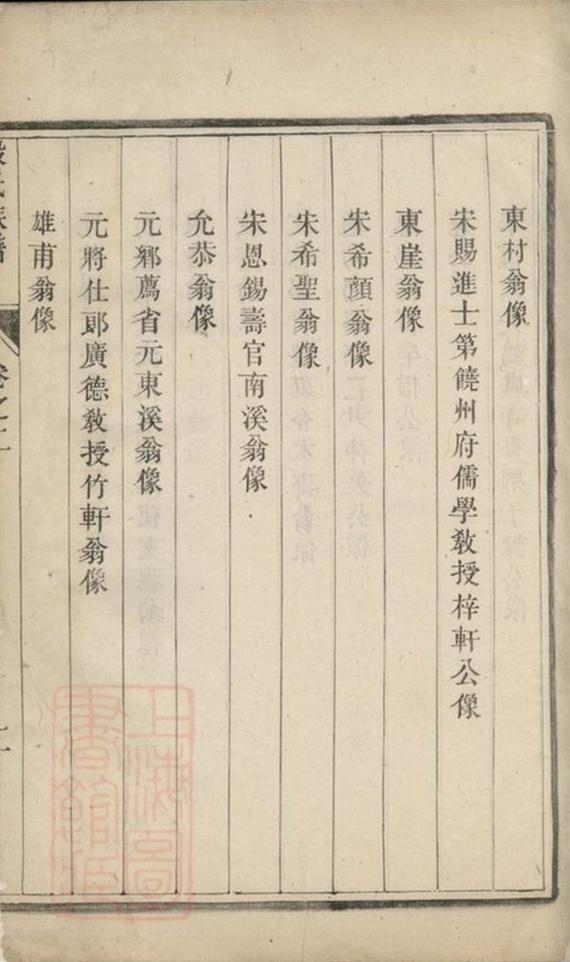 東村翁像
宋賜進士第饒州府儒學教授梓軒公像
東崖翁像
宋希顏翁像
宋希聖翁像
宋恩錫壽官南溪翁像
允恭翁像
元鄉薦省元東溪翁像
元將仕郎廣德教授竹軒翁像
雄甫翁像
氏族譜
卷之一
上海圖書館藏